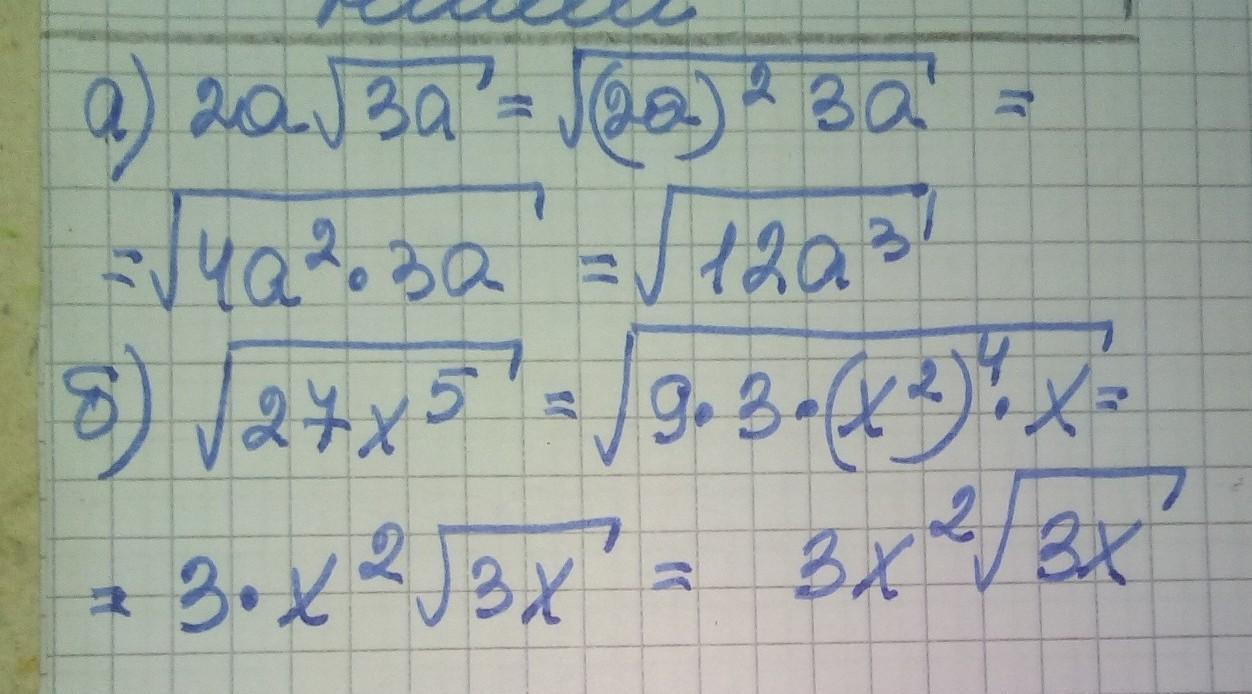 а) 2a√3a = √(2a)² 3a =
= √4a² · 3a = √12a³
б) √27x⁵ = √9 · 3 · (x²)⁴ · x =
= 3 · x²√3x = 3x²√3x